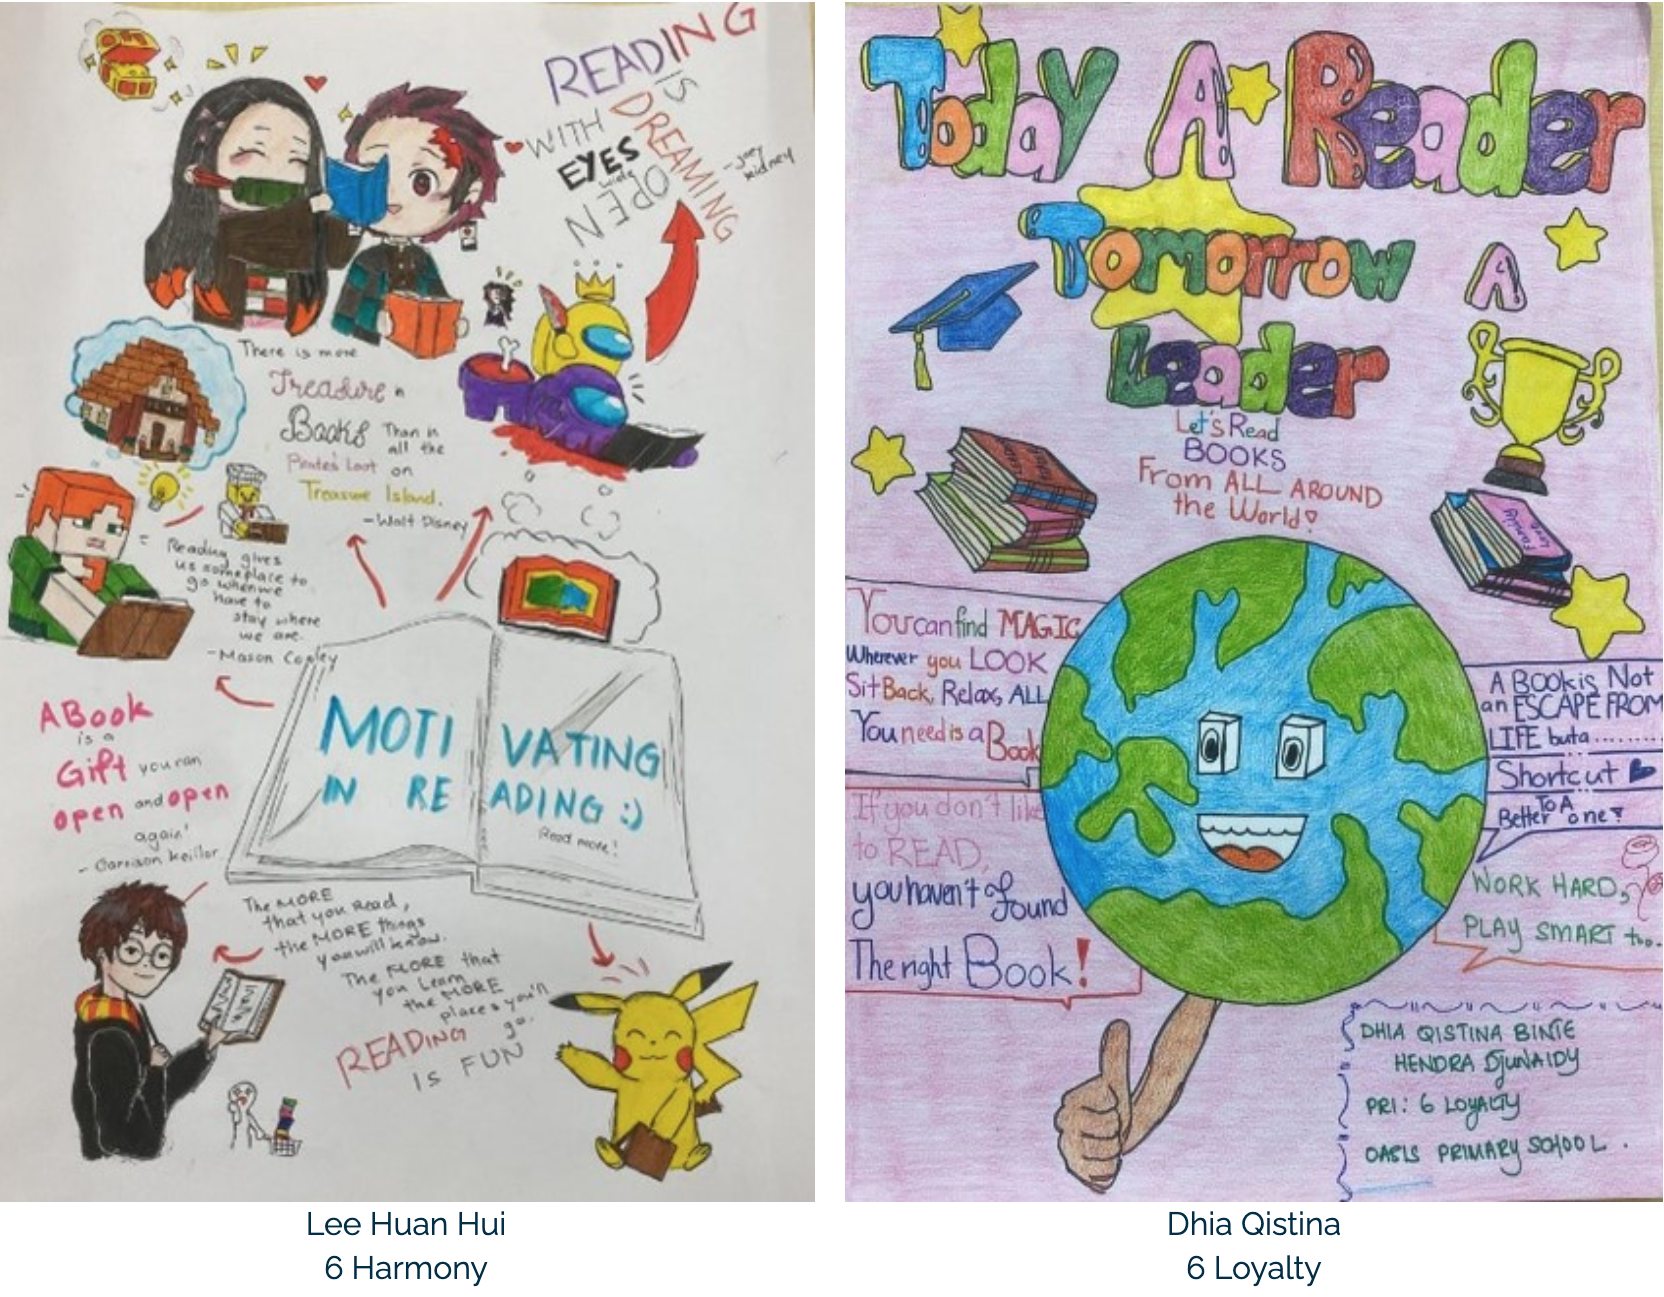 READING
IS
DREAMING
WITH
EYES
wide
OPEN
- Joey
Kidney
There is more
Treasure in
Books Than in
all the
Pirate's Loot on
Treasure Island.
- Walt Disney
Reading gives
us someplace to
go when we
have to
stay where
we are.
- Mason Cooley
A Book
is a
Gift you can
open and open
again'
- Garrison Keillor
MOTI VATING
IN RE ADING :)
Read more!
The MORE
that you Read,
the MORE things
you will know.
The MORE that
you Learn
the MORE
places you'll
go.
READING
IS FUN
Lee Huan Hui
6 Harmony
Today A Reader
Tomorrow A
Leader
Let's Read
BOOKS
From ALL AROUND
the World!
Love
Family
You can find MAGIC
Wherever you LOOK
Sit Back, Relax, ALL
You need is a Book
If you don't like
to READ,
you haven't found
The right Book!
A BOOK is Not
an ESCAPE FROM
LIFE but a ........
Shortcut
TO A
Better one!
WORK HARD,
PLAY SMART too.
DHIA QISTINA BINTE
HENDRA DJUNAIDY
PRI: 6 LOYALTY
OASIS PRIMARY SCHOOL.
Dhia Qistina
6 Loyalty